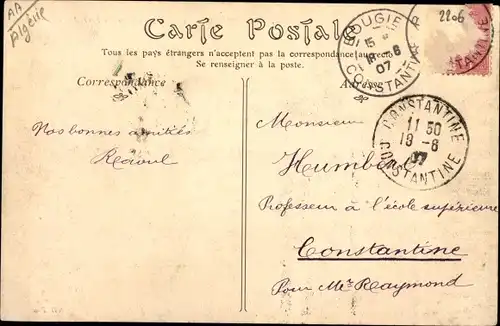 AA
Algérie
2206
Carte Postale
Tous les pays étrangers n'acceptent pas la correspondance au recto
Se renseigner à la poste.
BOUGIE
15
18-6
07
CONSTANTINE
Correspondance
Adresse
CONSTANTINE
11 50
19-6
07
CONSTANTINE
Nos bonnes amitiés
Raoul
Monsieur
Humbert
Professeur à l'école supérieure
Constantine
Pour Mr Raymond